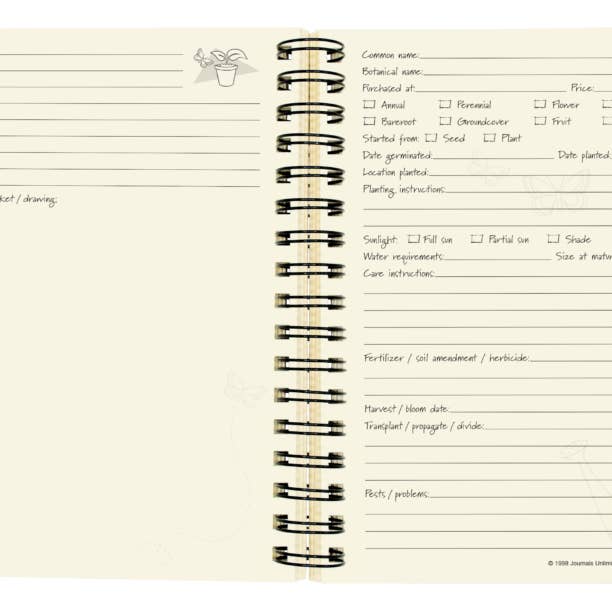 ket / drawing:
Common name:
Botanical name:
Purchased at: Price:
Annual Perennial Flower
Bareroot Groundcover Fruit
Started from: Seed Plant
Date germinated: Date planted:
Location planted:
Planting instructions:
Sunlight: Full sun Partial sun Shade
Water requirements: Size at matur
Care instructions:
Fertilizer / soil amendment / herbicide:
Harvest / bloom date:
Transplant / propagate / divide:
Pests / problems:
© 1998 Journals Unlim